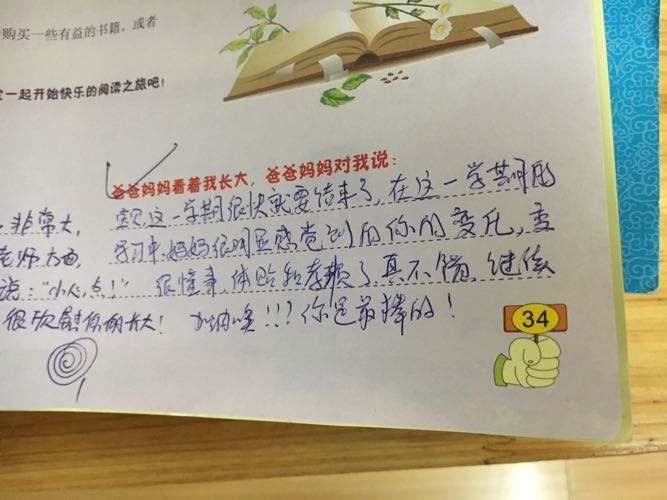 购买一些有益的书籍，或者
一起开始快乐的阅读之旅吧！
爸爸妈妈看着我长大，爸爸妈妈对我说：
非常大，
这一学期很快就要结束了，在这一学期的
老师方面，
学习中，妈妈很明显感觉到了你的变化，变
说："小心点！"
很懂事，体贴和孝顺了，真不错，继续
很欣慰你的长大！
加油噢!!!你是最棒的！
34